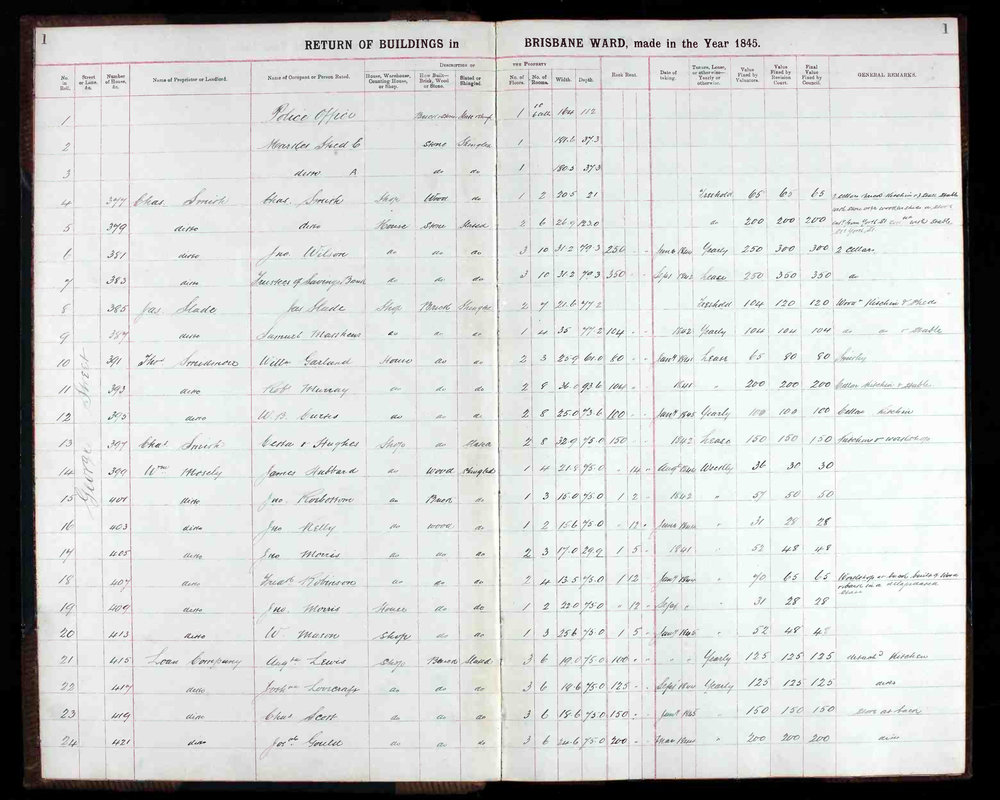 1
1
RETURN OF BUILDINGS in BRISBANE WARD, made in the Year 1845.
DESCRIPTION OF THE PROPERTY
No. in Roll. Street or Lane, &c. Number of House, &c. Name of Proprietor or Landlord. Name of Occupant or Person Rated. House, Warehouse, Counting House, or Shop. How Built—Brick, Wood or Stone. Slated or Shingled. No. of Floors. No. of Rooms. Width. Depth. Rack Rent. Date of taking. Tenure, Lease, or otherwise—Yearly or otherwise. Value Fixed by Valuators. Value Fixed by Revision Court. Final Value Fixed by Council. GENERAL REMARKS.
George Street
1 Police Office 1 112
2 Market Shed C Stone Shingled 1 37.3
3 ditto A do do 1 37.3
4 377 Chas. Smith Chas. Smith Shop Wood do 1 2 20.5 21 Freehold 65 65 65
5 379 ditto ditto House Stone Slated 2 6 do 200 200 200
6 381 ditto Jno. Wilson do do do 3 10 31.2 70.3 250 Yearly 250 300 300 2 Cellars
7 383 ditto Trustees of Savings Bank do do do 3 10 31.2 70.3 350 Lease 250 350 350 do
8 385 Jas. Slade Jas Slade Shop Brick Shingled 2 7 21.6 77.2 Freehold 104 120 120 Kitchen & Sheds
9 387 ditto Samuel do do do 1 4 35 77.2 104 1842 Yearly 104 104 104 do do & Stable
10 391 Willm Garland House do do 2 3 25.9 61.0 80 Lease 65 80 80
11 393 ditto Robt Murray do do do 2 8 36.0 93.6 104 200 200 200 Cellar Kitchen & Stable
12 395 ditto W. B. do do do 2 8 25.0 73.6 100 1845 Yearly 100 100 100 Cellar Kitchen
13 397 Chas Smith & Hughes Shop do Slated 2 8 32.9 75.0 150 1842 Lease 150 150 150 Kitchen & workshop
14 399 Wm Mosely James Hubbard do Wood Shingled 1 4 21.8 75.0 14 Weekly 36 30 30
15 401 ditto Jno Rosbottom do Brick do 1 3 15.0 75.0 1 2 1842 " 57 50 50
16 403 ditto Jno Kelly do wood do 1 2 15.6 75.0 12 " 31 28 28
17 405 ditto Jno Morris do do do 2 3 17.0 29.9 1 5 1841 " 52 48 48
18 407 ditto Fredk Robinson do do do 2 4 13.5 75.0 1 12 " 70 65 65 Workshop at back built of Wood
19 409 ditto Jno Morris House do do 1 2 22.0 75.0 12 Sept " " 31 28 28
20 413 ditto W. Mason Shop do do 1 3 25.6 75.0 1 5 1845 " 52 48 48
21 415 Loan Company Lewis Shop Brick Slated 3 6 19.0 75.0 100 " " Yearly 125 125 125 detachd Kitchen
22 417 ditto Lovecraft do do do 3 6 18.6 75.0 125 Yearly 125 125 125 ditto
23 419 ditto Chas Scott do do do 3 6 18.6 75.0 150 1845 " 150 150 150 Store at back
24 421 ditto Josh Gould do do do 3 6 24.6 75.0 200 " 200 200 200 ditto